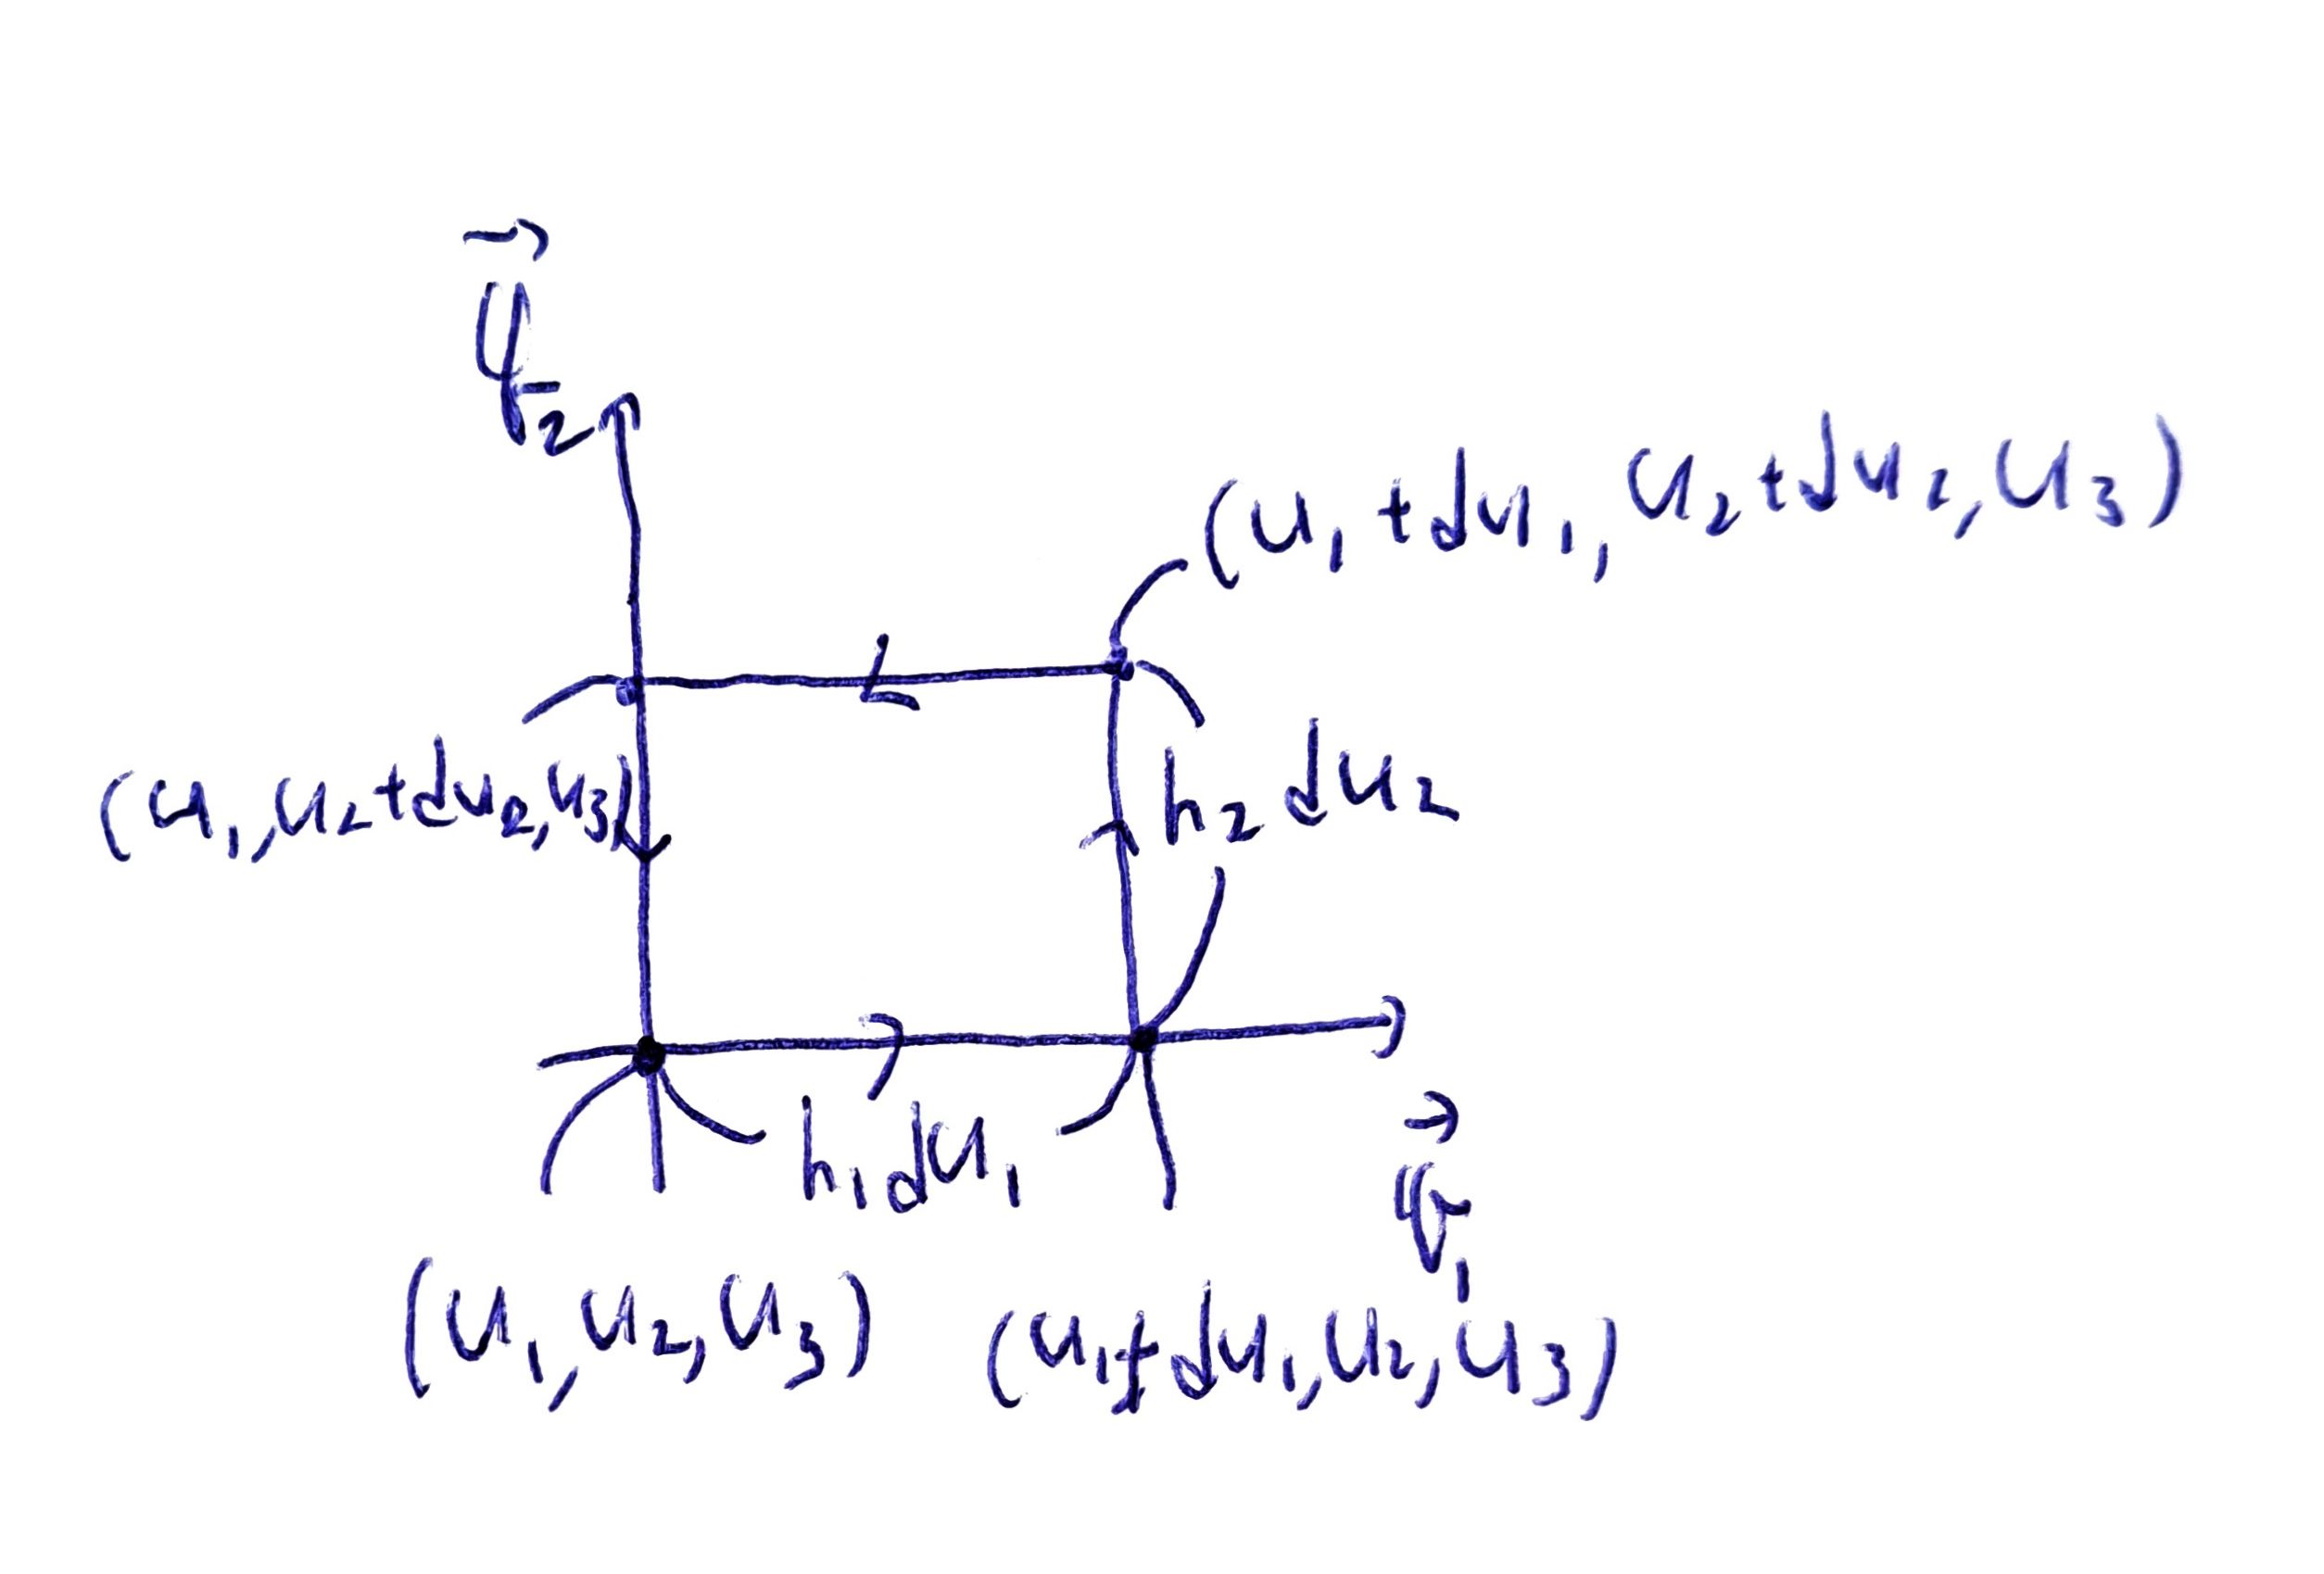 (u₁+du₁, u₂+du₂, u₃)
(u₁, u₂+du₂, u₃)
h₂du₂
h₁du₁
(u₁, u₂, u₃)
(u₁+du₁, u₂, u₃)